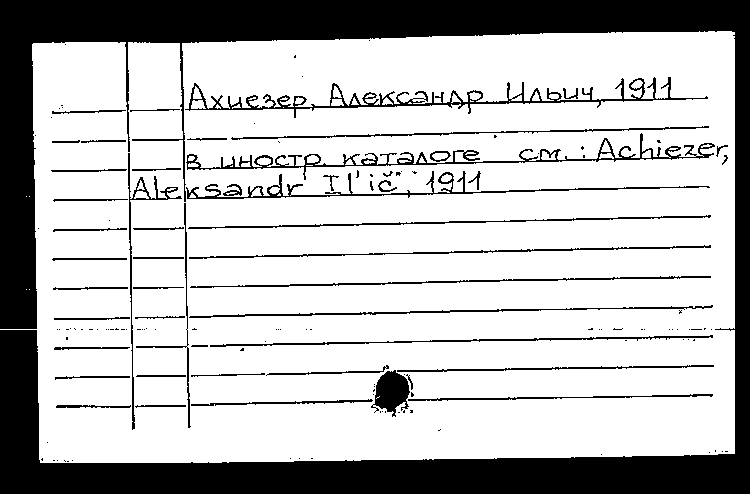 Ахиезер, Александр Ильич, 1911
в иностр. каталоге см.: Achiezer,
Aleksandr Il'ič, 1911